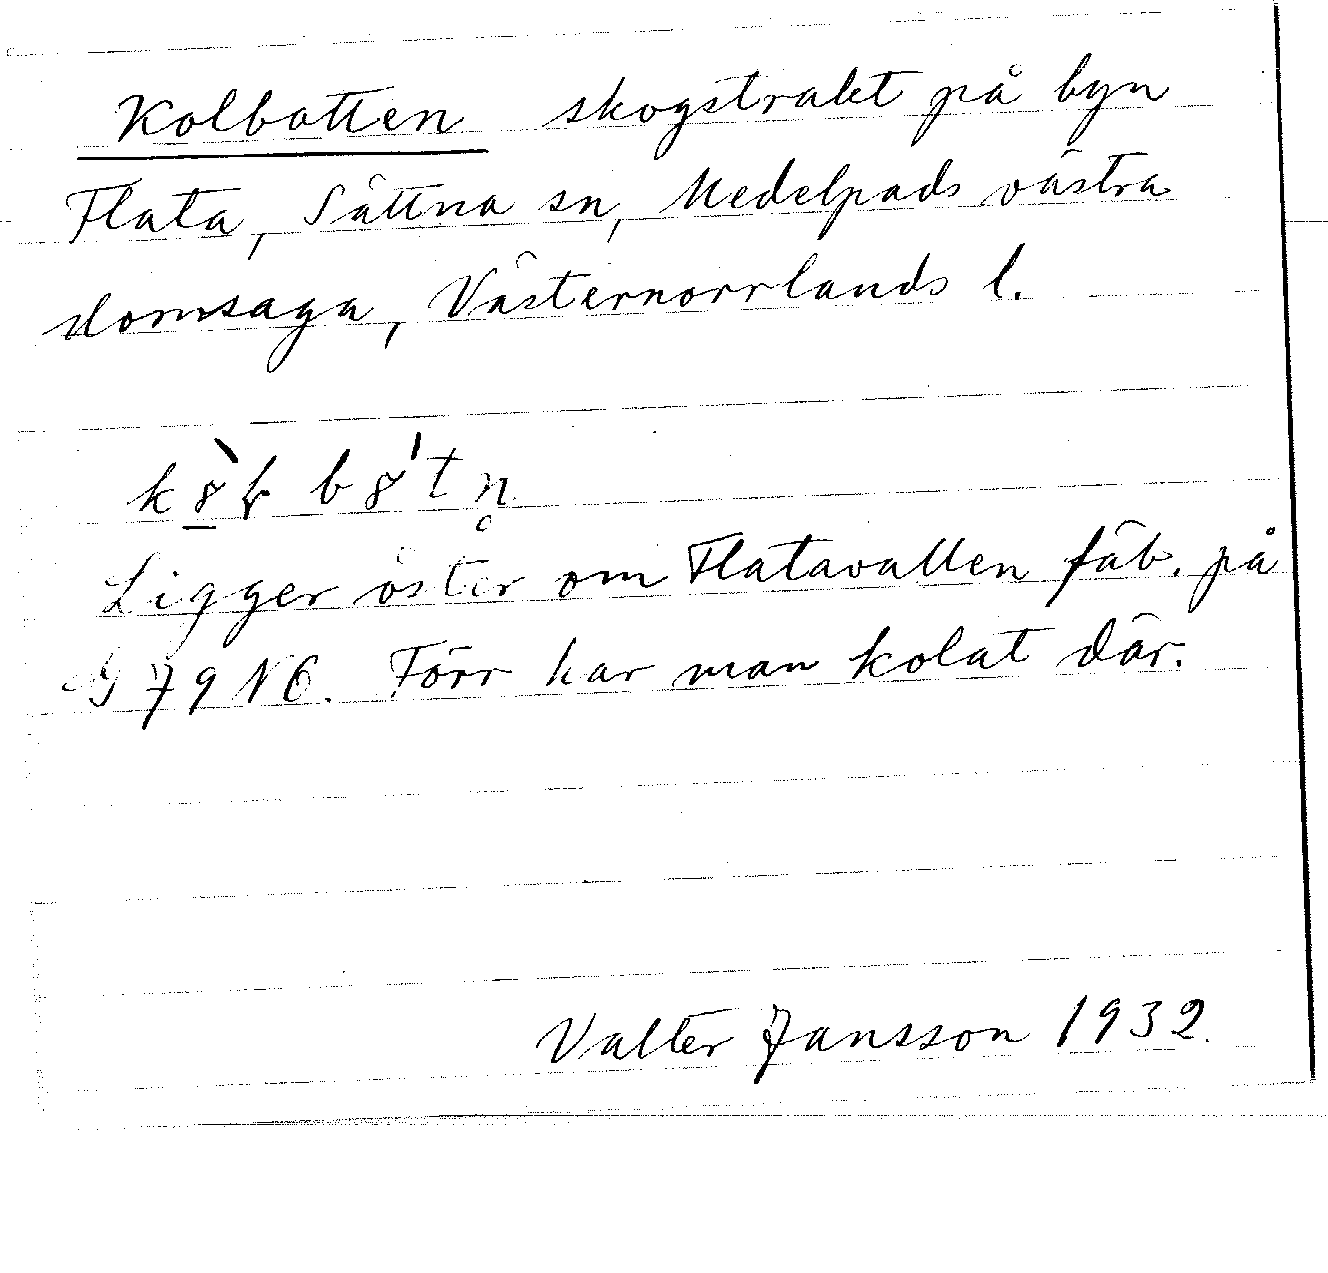 Kolbotten skogstrakt på byn
Flata, Sättna sn, Medelpads västra
domsaga, Västernorrlands l.
Ligger öster om Flatavallen fäb. på
G 79 NO. Förr har man kolat där.
Valter Jansson 1932.